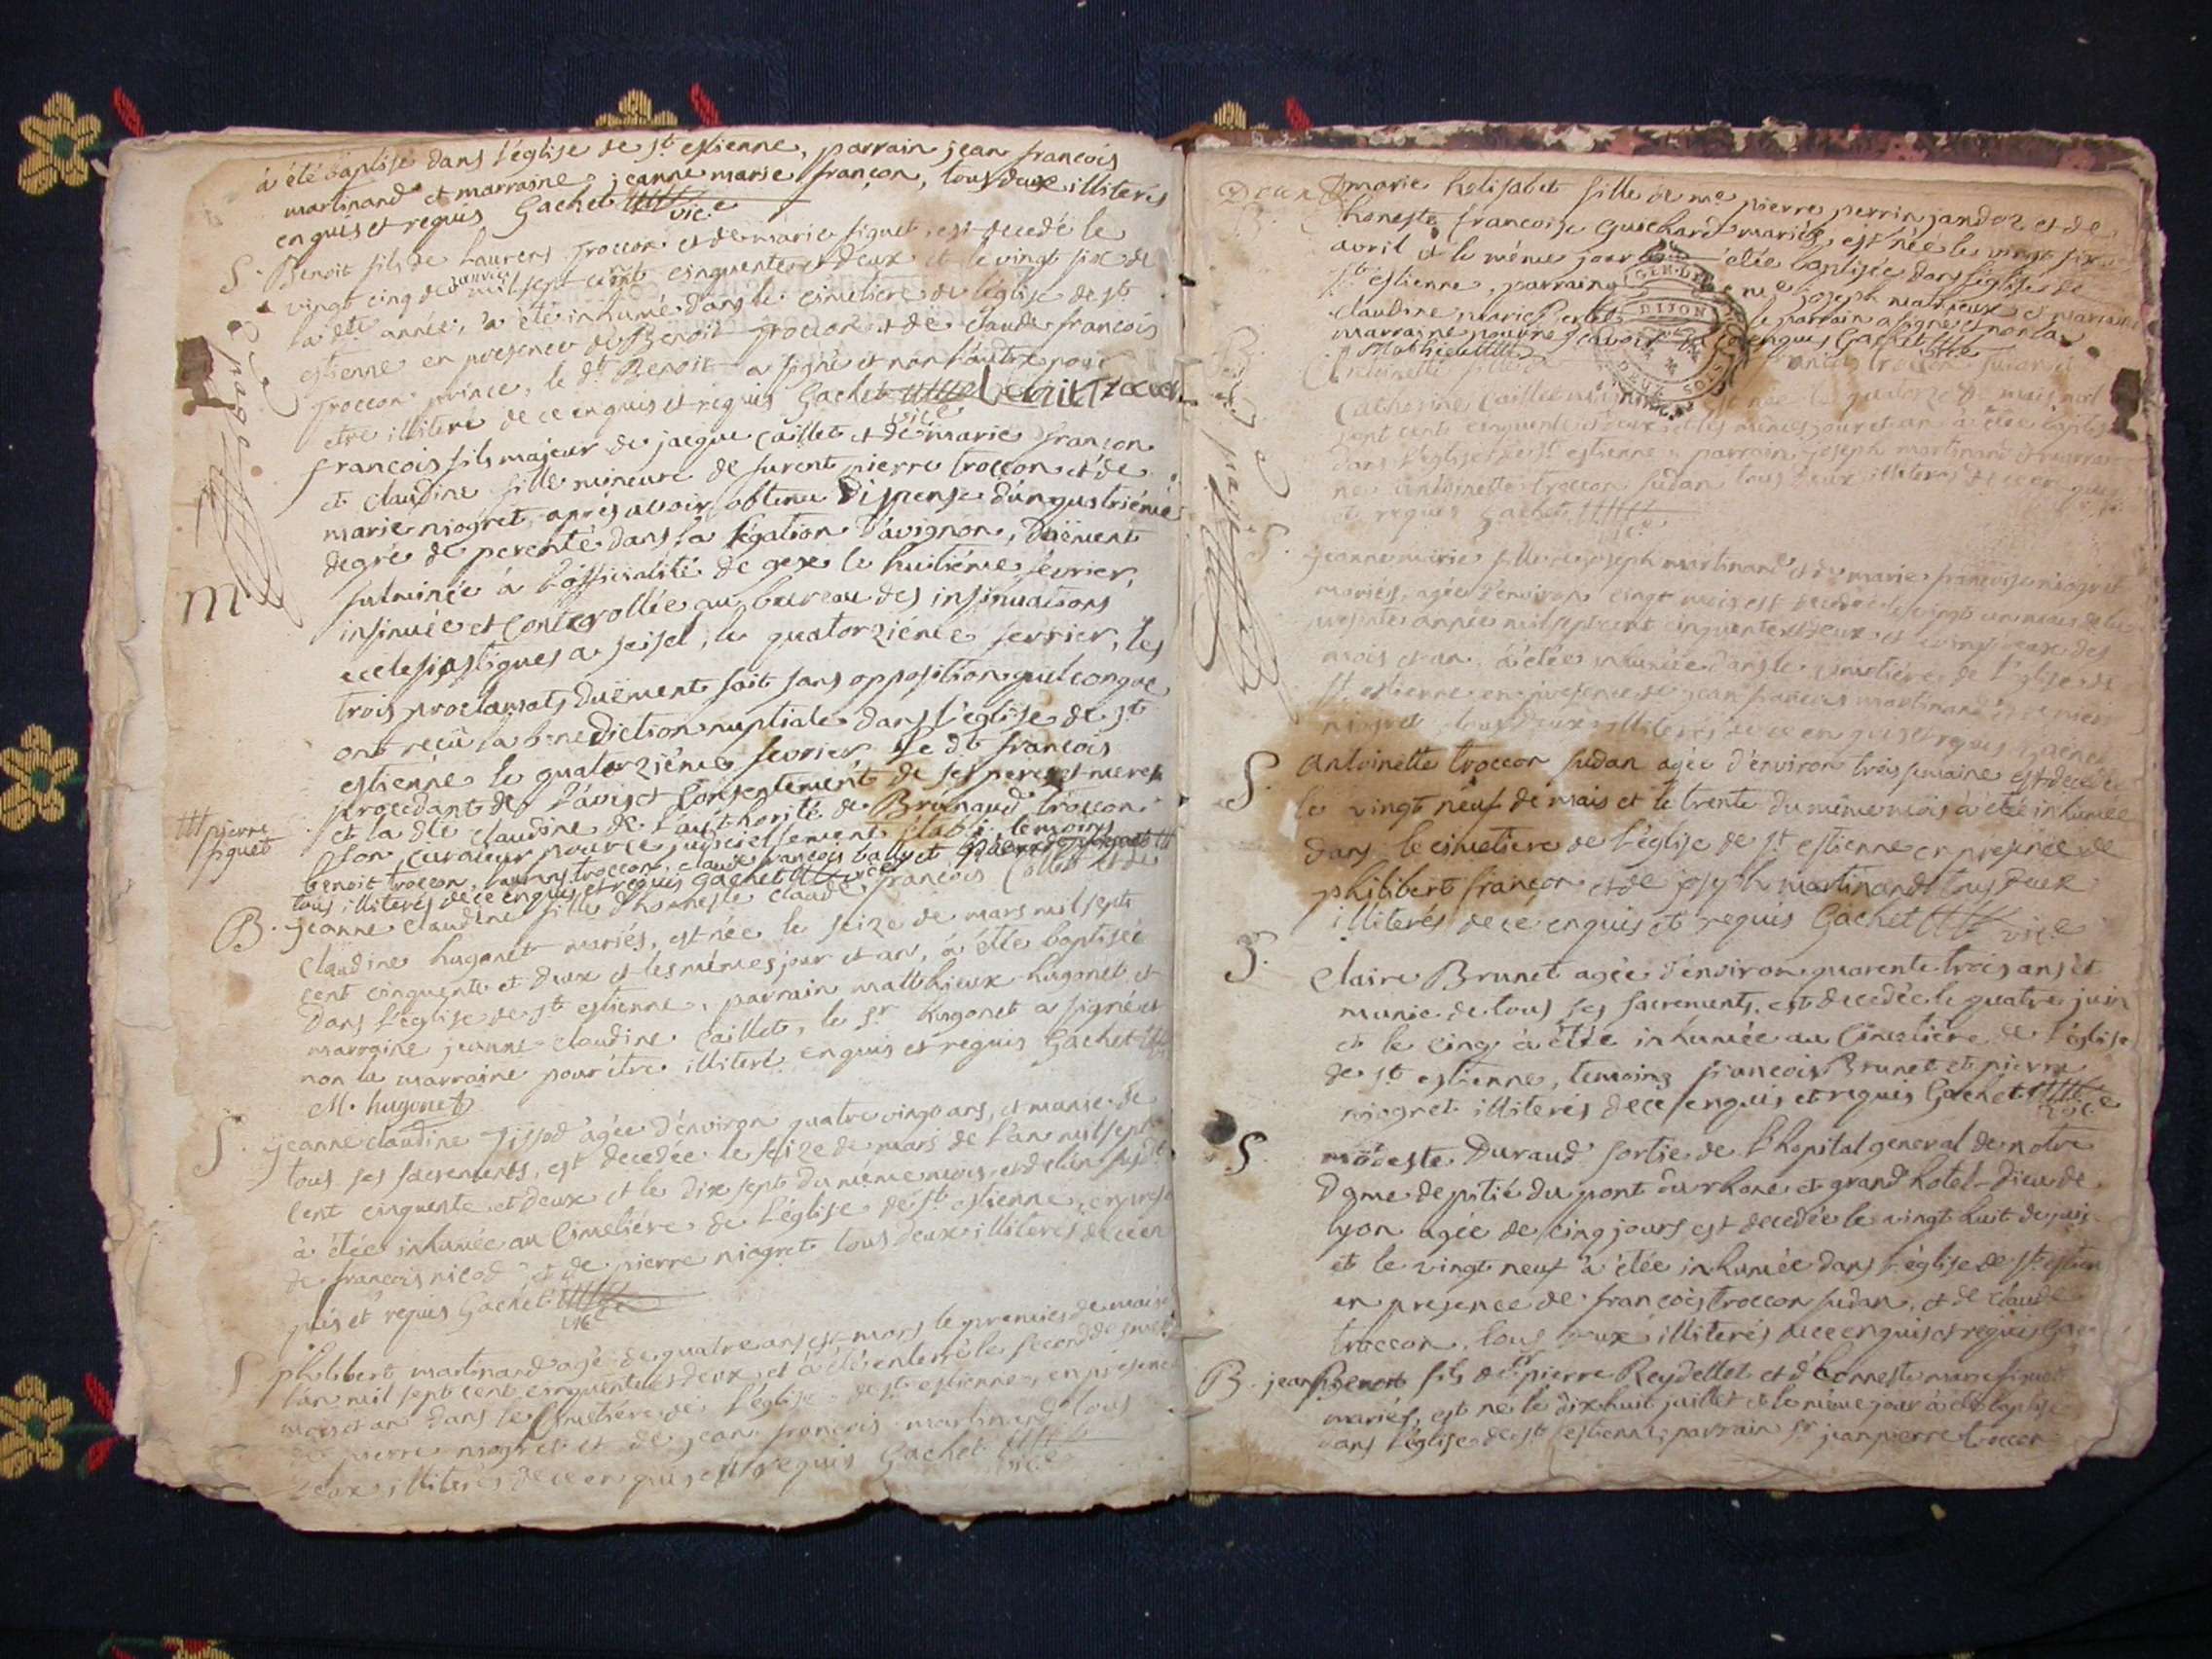 à été baptisé dans l'église de st estienne, parrain jean francois
martinand et marraine jeanne marie françon, tous deux illiterés
enquis et requis Gachet vice
S. Benoit fils de Laurens troccon et de marie figuet, est decedé le
vingt cinq de janvier mil sept cent cinquente et deux et le vingt six de
la dte année, à été inhumé dans le cimetiere de l'église de st
estienne en presence de Benoit troccon et de claude francois
troccon prince, le dt Benoit a signé et non l'autre pour
etre illiteré de ce enquis et requis Gachet vice benoit troccon
2e page
francois fils majeur de jacque caillet et de marie françon
et claudine fille mineure de furent pierre troccon et de
marie niogret, après avoir obtenu dispense du
degré de parenté dans la légation d'avignon, duëment
fulminée à l'officialité de gex le huitiéme fevrier,
insinuée et controllée au bureau des insinuations
ecclesiastiques a seisel, le quatorziéme fevrier, les
trois proclamats duëment fait sans opposition quelconque
M
ont reçu la benediction nuptiale dans l'eglise de st
estienne le quatorziéme fevrier le dt francois
procedant de l'avis et consentement de ses pere et mere
et la dte claudine de l'authorité de Brunaud troccon
son curateur pour ce judiciellement établi, temoins
benoit troccon, laurens troccon, claude francois bally et
pierre figuet
tous illiterés de ce enquis et requis Gachet vice
B. jeanne claudine fille d'honneste claude francois Collet et de
claudine hugonet mariés, est née le seize de mars mil sept
cent cinquente et deux et les mémes jour et an, à étée baptisée
dans l'église de st estienne, parrain matthieux hugonet et
marraine jeanne claudine caillet, le sr hugonet a signé et
non la marraine pour étre illiteré enquis et requis Gachet
M. hugonet
S. jeanne claudine agée d'environ quatre vingt ans, et munie de
tous ses sacrements, est decedée le seize de mars de l'an mil sept
cent cinquente et deux et le dix sept du méme mois et de l'an susdt
à étée inhumée au cimetiére de l'église de st estienne, en presce
de francois nicod et de pierre niogret tous deux illiterés de ce en
quis et requis Gachet vice
S philibert martinand agé de quatre ans est mors le premier de mai
l'an mil sept cent cinquente et deux, et à été enterré le second de
mois et an dans le cimetiére de l'église de st estienne, en presence
de pierre niogret et de jean francois martinand tous
deux illiterés de ce enquis et requis Gachet vice
B marie helisabet fille de me pierre perrin jandoz et de
honeste francoise Guichard mariés, est née le vingt six
avril et le méme jour étée baptisée dans l'église de
st estienne, parrain me joseph mathieux et marraine
claudine marie le parrain a signé et non la
marraine pour ne scavoir enquis Gachet vice
Mathieu
DIJON
B. Antoinette fille de francois troccon sudan et
Catherine caillet mariés est née le quatorze de mais mil
sept cent cinquente et deux et les mémes jour et an à étée baptisée
dans l'église de st estienne, parrain joseph martinand et marrai
ne antoinette troccon sudan tous deux illiterés de ce enquis
et requis Gachet vice
3e page
S. jeanne marie fille de joseph martinand et de marie francoise niogret
mariés, agée d'environ cinq mois est decedée le vingt un mais de la
presente année mil sept cent cinquente et deux et le vingt deux des
mois et an, à étée inhumée dans le cimetiére de l'église de
st estienne en presence de jean francois martinand et de pierre
niogret tous deux illiterés de ce enquis et requis Gachet
S. Antoinette troccon sudan agée d'environ trois semaine est decedée
le vingt neuf de mais et le trente du méme mois à étée inhumée
dans le cimetiere de l'église de st estienne en presence de
philibert françon et de joseph martinand tous deux
illiterés de ce enquis et requis Gachet vice
S. claire Brunet agée d'environ quarente trois ans et
munie de tous ses sacrements, est decedée le quatre juin
et le cinq à étée inhumée au Cimetiére de l'église
de st estienne, temoins francois Brunet et pierre
niogret illiterés de ce enquis et requis Gachet vice
S. modeste Duraud sortie de l'hopital general de notre
dame de pitié du pont du rhone et grand hotel-dieu de
lyon agée de cinq jours est decedée le vingt huit de juin
et le vingt neuf à étée inhumée dans l'église de st estien
en presence de francois troccon sudan, et de claude
troccon, tous deux illiterés de ce enquis et requis Ga
B. jean fils de sr pierre Reydellet et d'honneste marie figuet
mariés, est né le dix huit juillet et le méme jour à été baptisé
dans l'église de st estienne, parrain sr jean pierre troccon